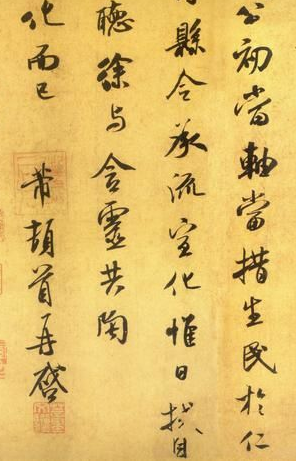 公初當軸當措生民於仁
縣令承流宣化惟日拭目
聽徐与含靈共陶
化而已 芾頓首再啓